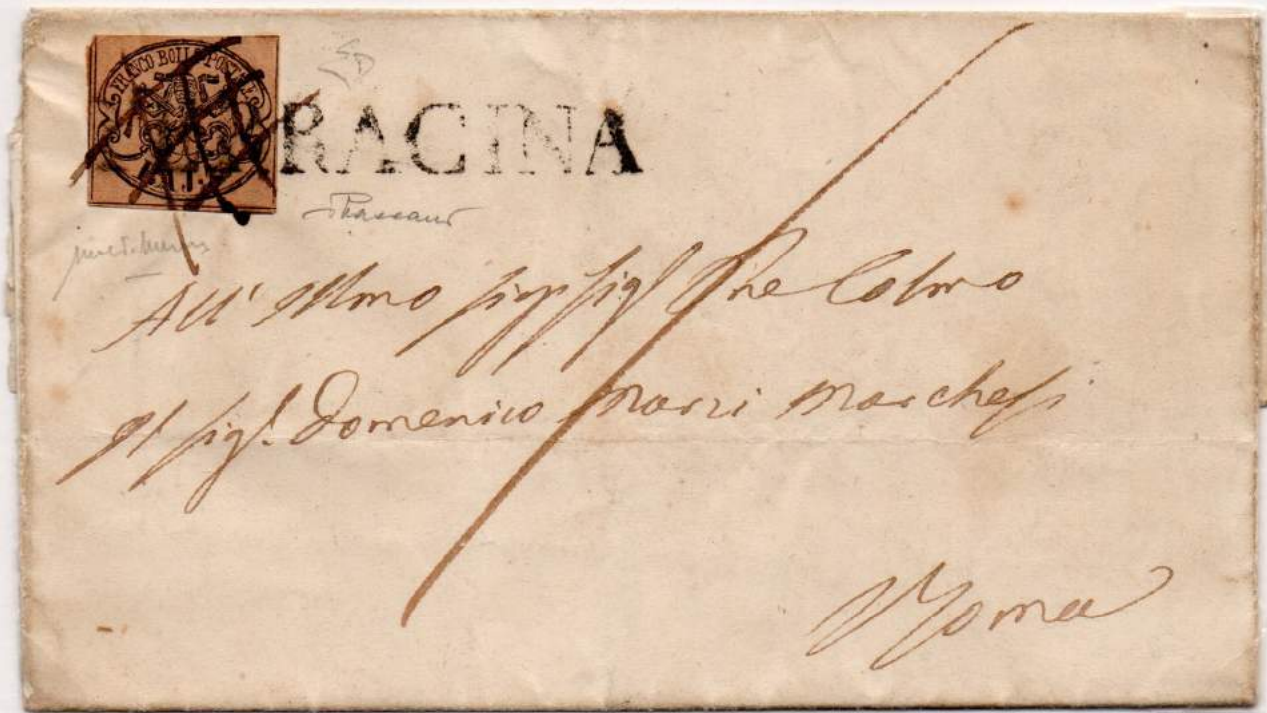 FRANCO BOLLO POSTALE
RAGINA
All' Illmo Sig. Sig. Pne Colmo
Il Sig. Domenico Marzi Marchesi
Roma